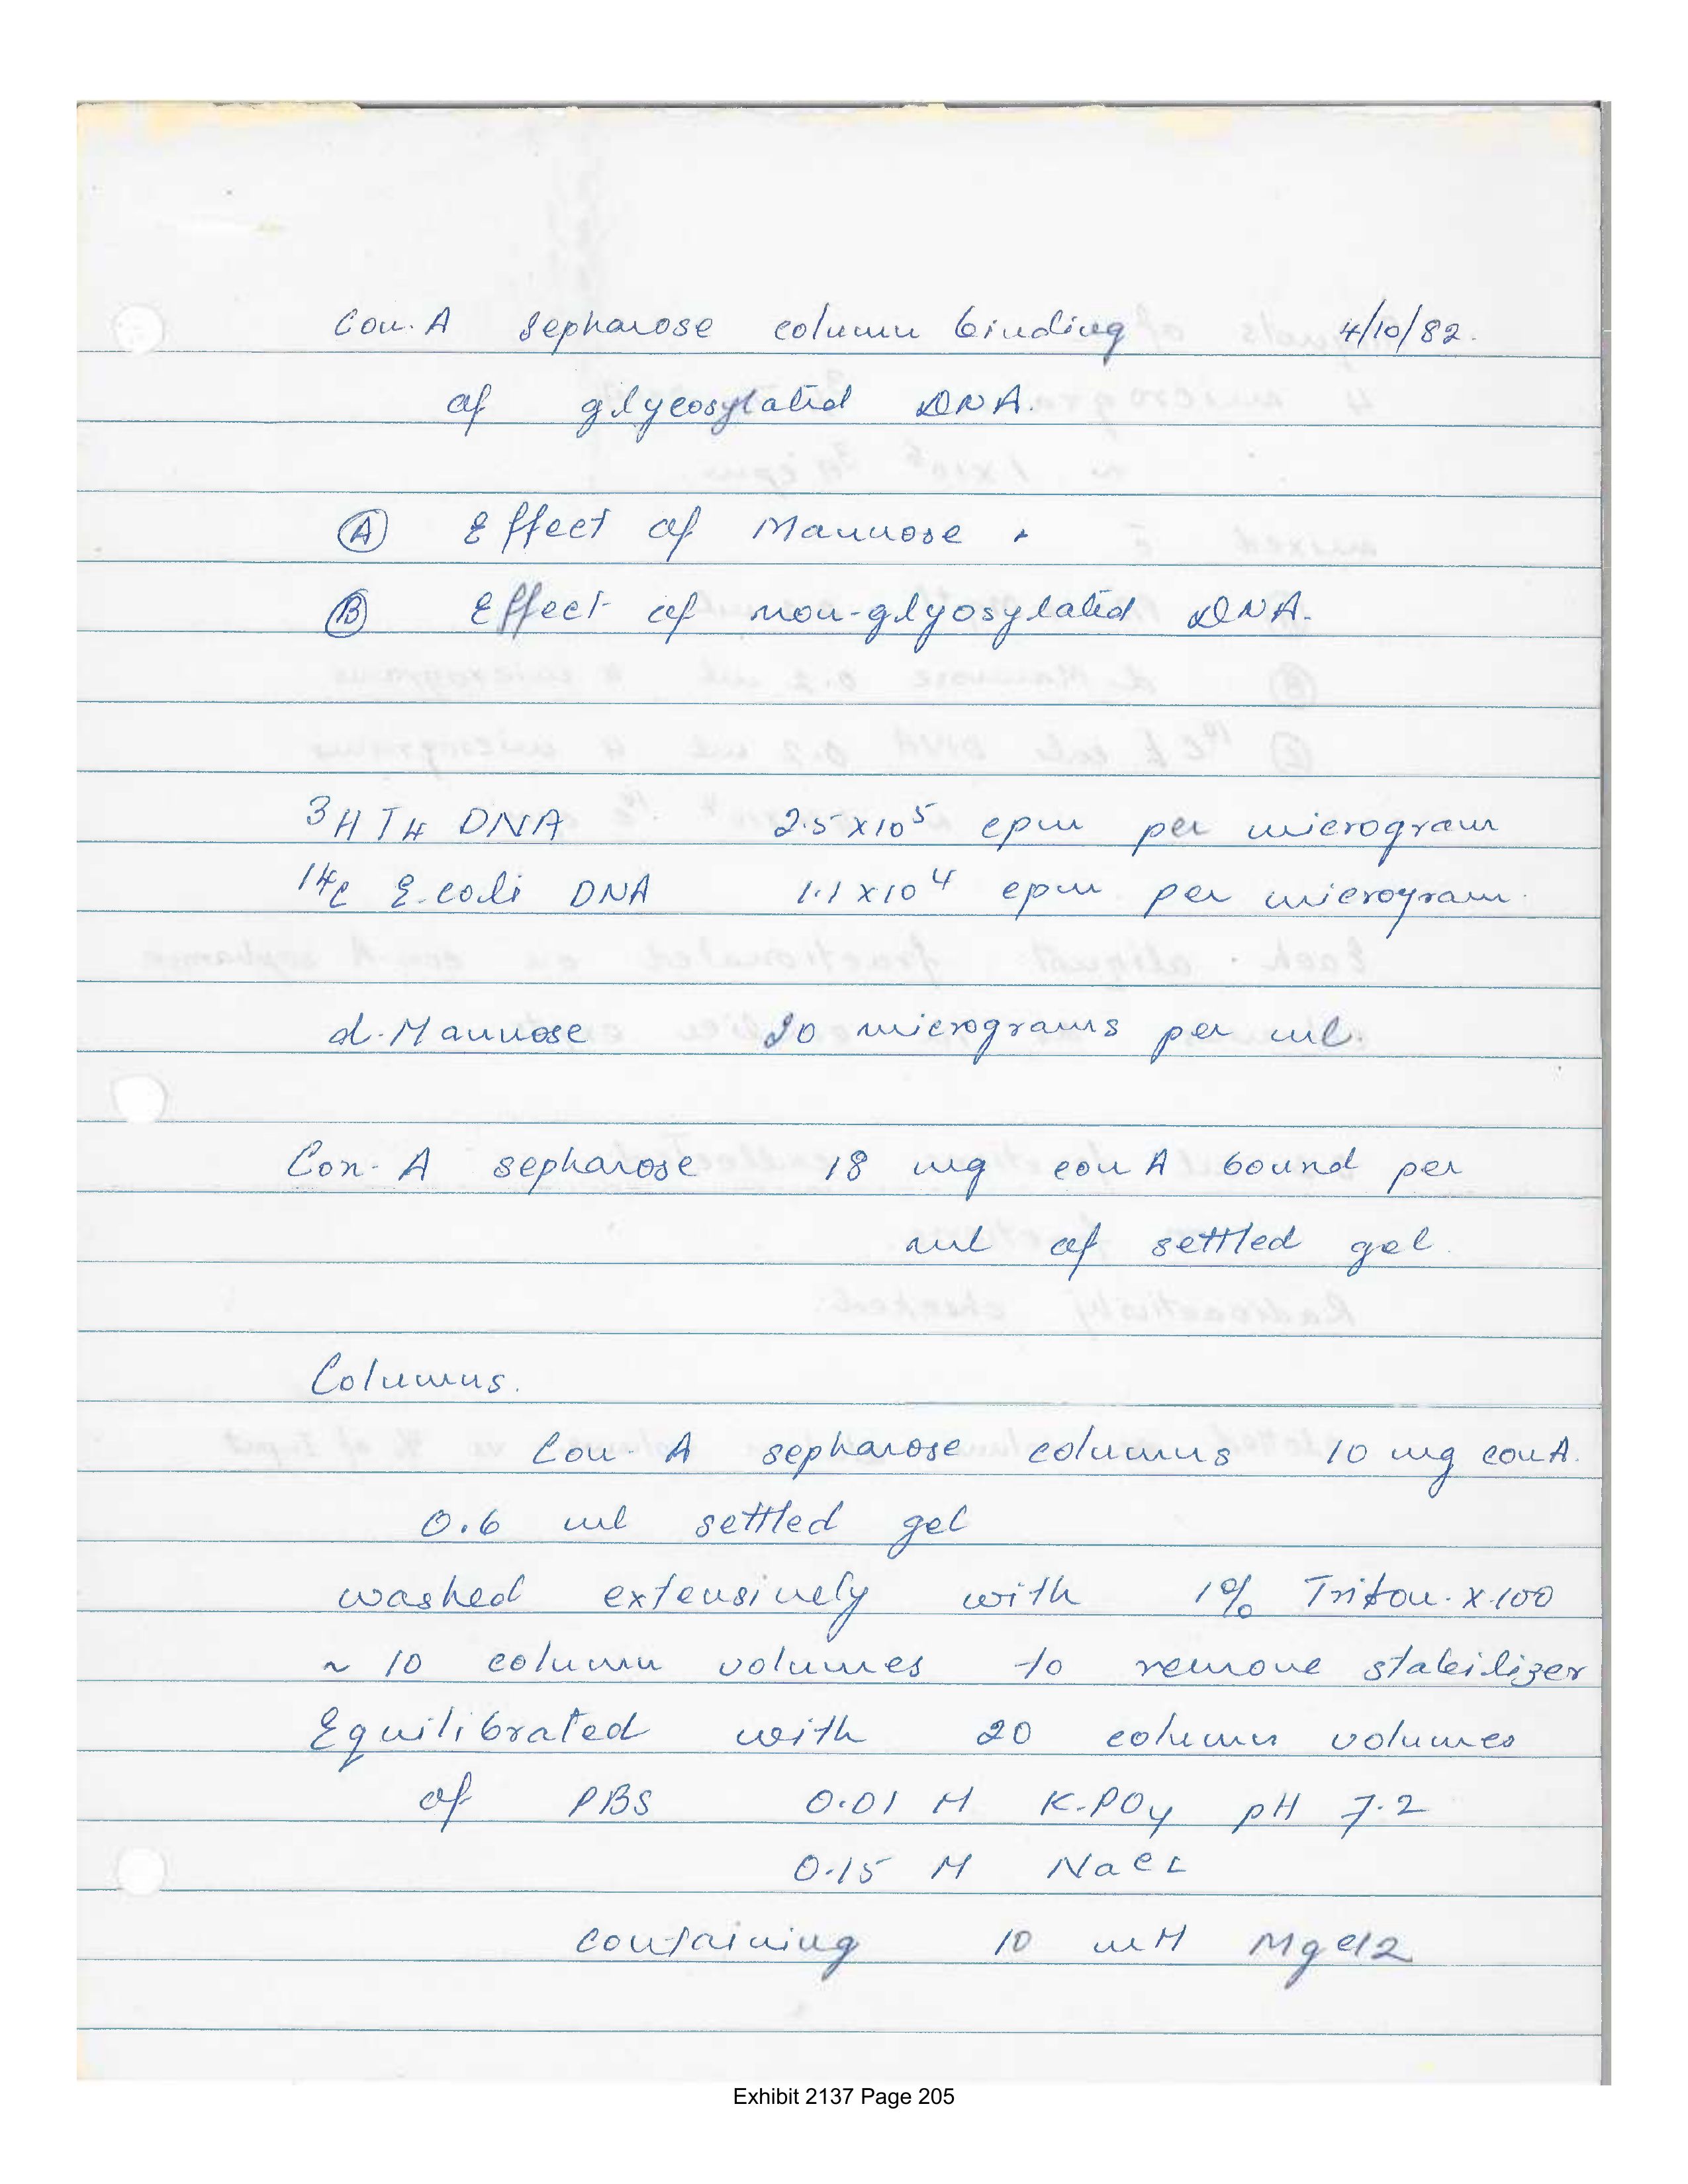 Con. A sepharose column binding 4/10/82.
of glycosylated DNA.
Ⓐ Effect of Mannose.
Ⓑ Effect of non-glyosylated DNA.
3H T4 DNA 2.5 x 10⁵ cpm per microgram
14C E.coli DNA 1.1 x 10⁴ cpm per microgram.
d. Mannose 20 micrograms per ml.
Con. A sepharose 18 mg con A bound per
ml of settled gel.
Columns.
Con. A sepharose columns 10 mg con A.
0.6 ml settled gel
washed extensively with 1% Triton. X-100
~ 10 column volumes to remove stabilizer
Equilibrated with 20 column volumes
of PBS 0.01 M K-PO4 pH 7.2
0.15 M NaCL
containing 10 mM MgCl2
Exhibit 2137 Page 205